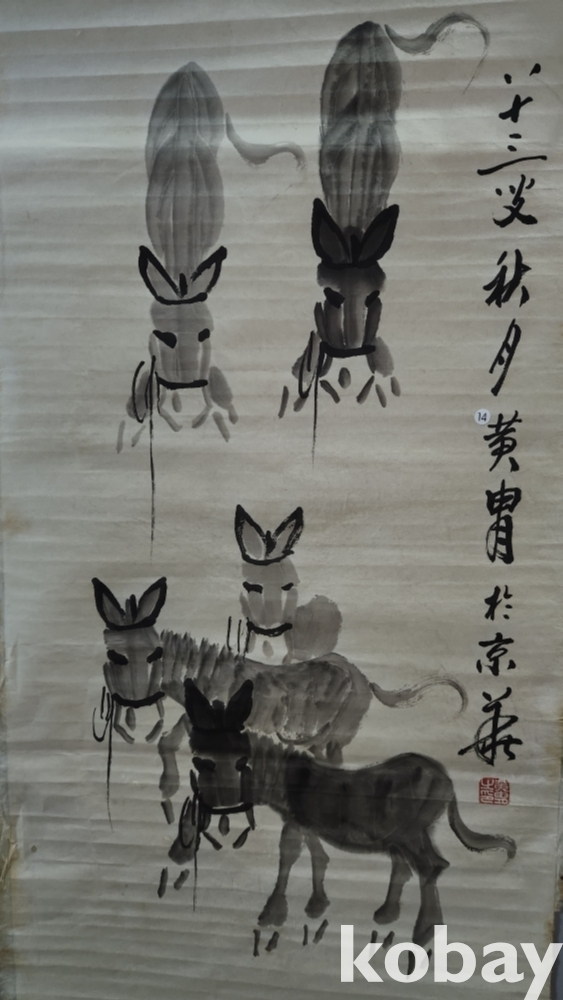 八十三叟秋月黄胄於京華
14
kobay